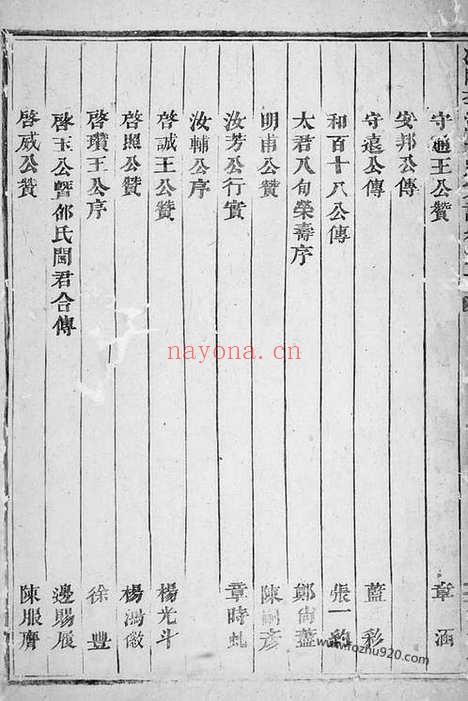 守通王公贊 章涵
安邦公傳
守遠公傳 藍彩
和百十八公傳 張一
太君八旬榮壽序 鄭尙藎
明甫公贊 陳嗣彥
汝芳公行實 章時虬
汝輔公序
啓誠王公贊 楊光斗
啓照公贊 楊鴻儆
啓瓚王公序 徐豐
啓玉公曁邵氏閫君合傳 邊賜展
啓威公贊 陳服膺
nayona.cn
www.fozhu920.com